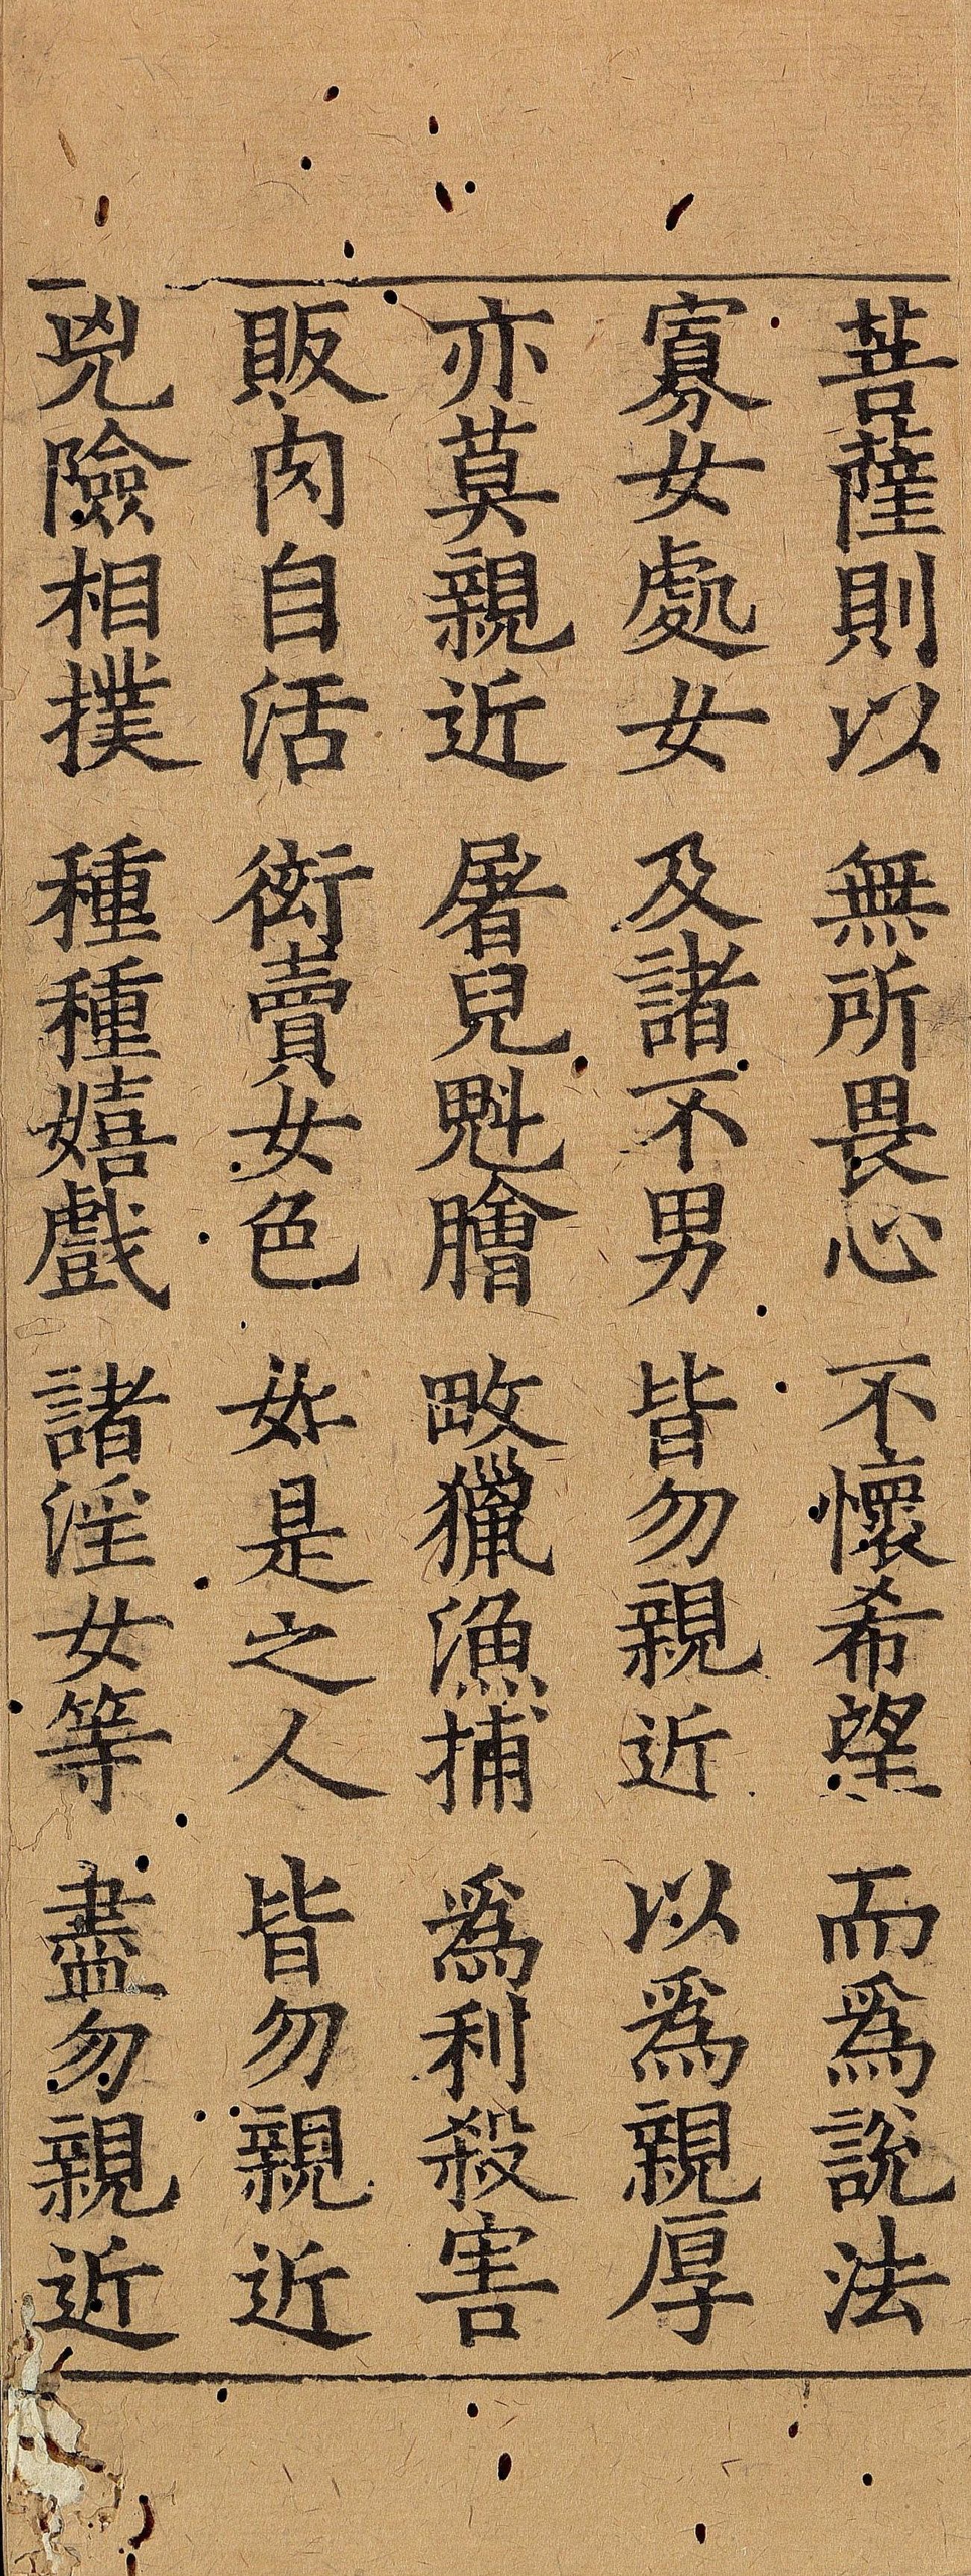 菩薩則以　無所畏心　不懷希望　而爲說法
寡女處女　及諸不男　皆勿親近　以爲親厚
亦莫親近　屠兒魁膾　畋獵漁捕　爲利殺害
販肉自活　衒賣女色　如是之人　皆勿親近
兇險相撲　種種嬉戲　諸婬女等　盡勿親近